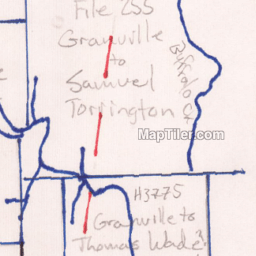 File 255
Granville
to
Samuel
Torrington
Buffalo Cr
MapTiler.com
H3775
Granville to
Thomas Wade?